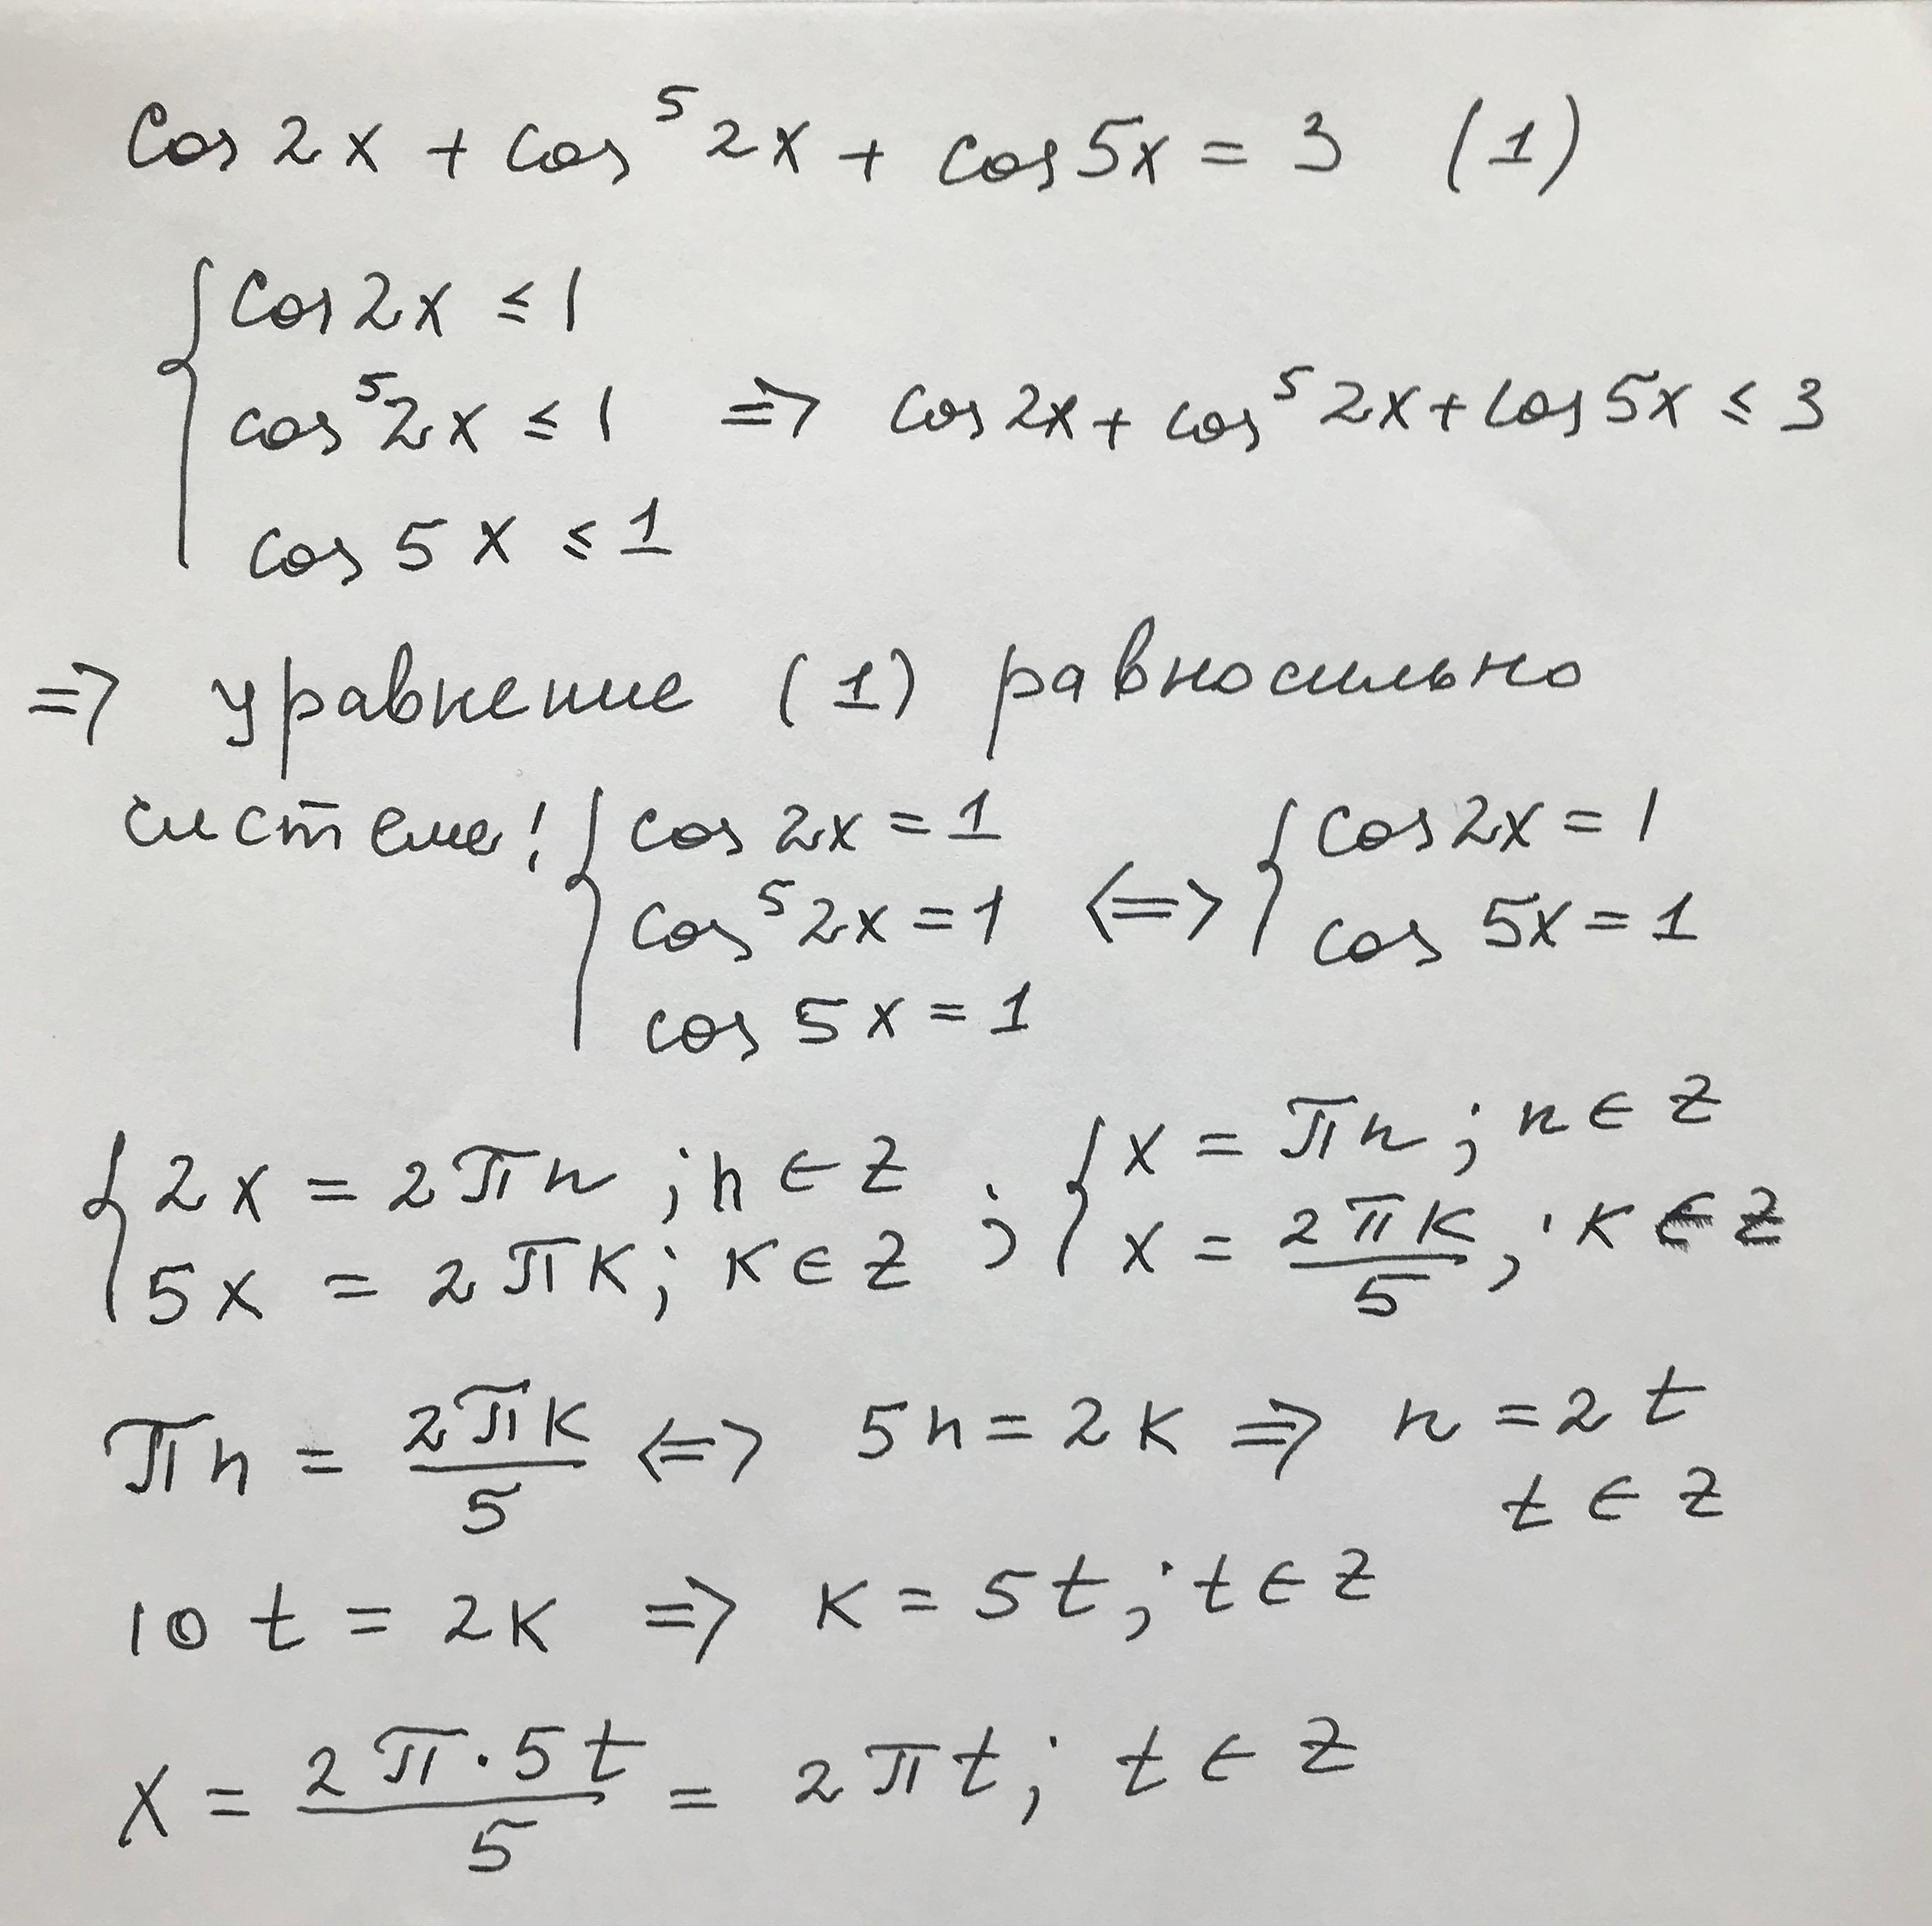 cos 2x + cos⁵ 2x + cos 5x = 3 (1)
{ cos 2x ≤ 1
cos⁵ 2x ≤ 1 => cos 2x + cos⁵ 2x + cos 5x ≤ 3
cos 5x ≤ 1
=> уравнение (1) равносильно
системе: { cos 2x = 1 { cos 2x = 1
cos⁵ 2x = 1 <=> cos 5x = 1
cos 5x = 1
{ 2x = 2πn ; n ∈ Z ; { x = πn ; n ∈ Z
5x = 2πk ; k ∈ Z x = 2πk/5 ; k ∈ Z
πn = 2πk/5 <=> 5n = 2k => n = 2t
t ∈ Z
10t = 2k => k = 5t ; t ∈ Z
x = 2π·5t/5 = 2πt ; t ∈ Z